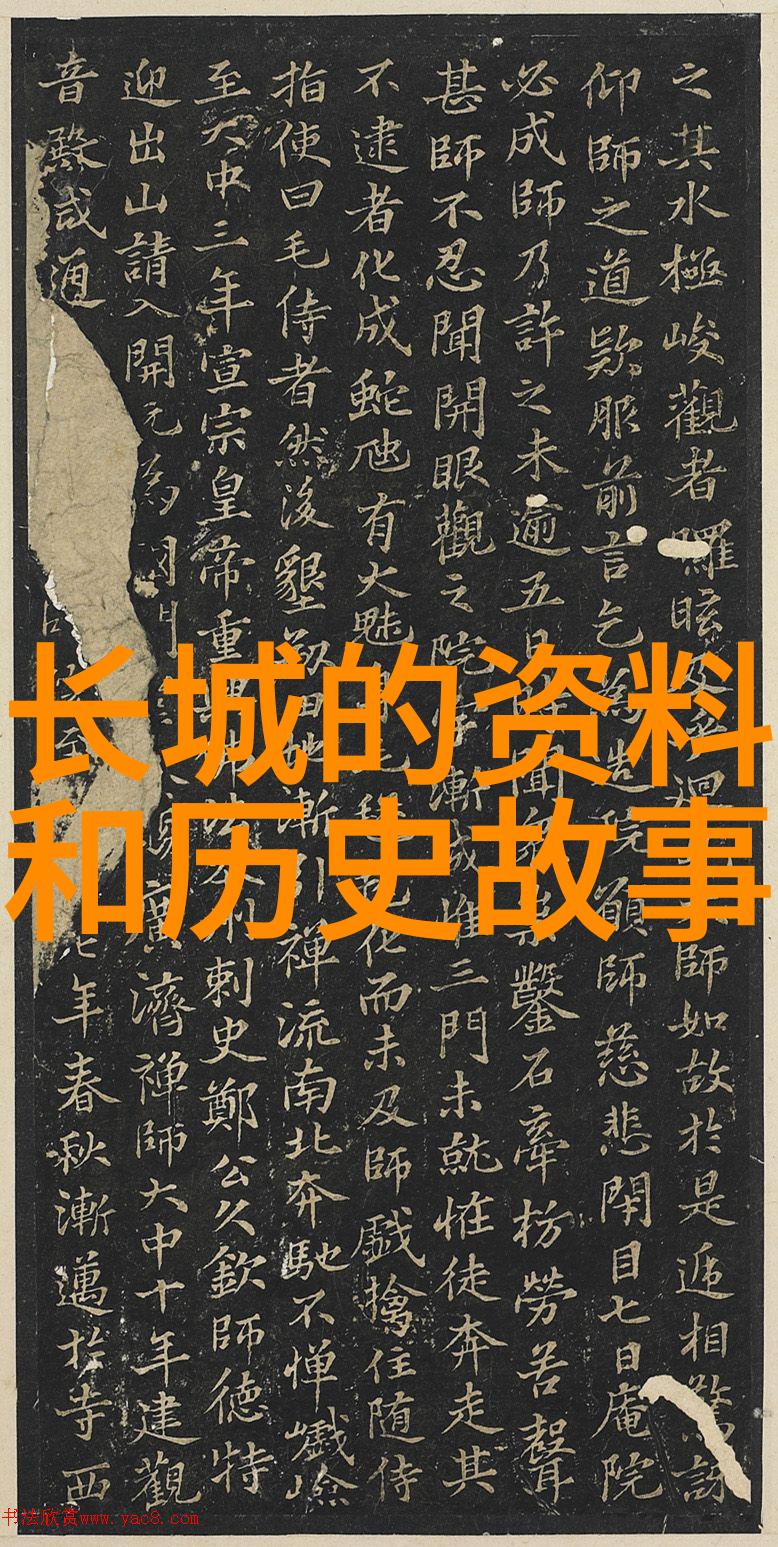 长城的资料
和历史故事
之其水極峻觀者眩師如故於是遞相驚訝
仰師之道欵服前言乞為造院願師慈悲閇目七日庵院
必成師乃許之未逾五日聞鑿石牽枋勞苦聲
甚師不忍聞開眼觀之院漸成惟三門未就恠徒奔走其
不逮者化成蛇虺有大魅化而未及師戲擒住随侍
指使曰毛侍者然後墾漸引禪流南北奔馳不憚巇嶮
至大中三年宣宗皇帝重刺史鄭公久欽師德特
迎出山請入開元為廣濟禪師大中十年建觀
音殿咸通七年春秋漸邁於寺西
书法欣赏www.yac8.com